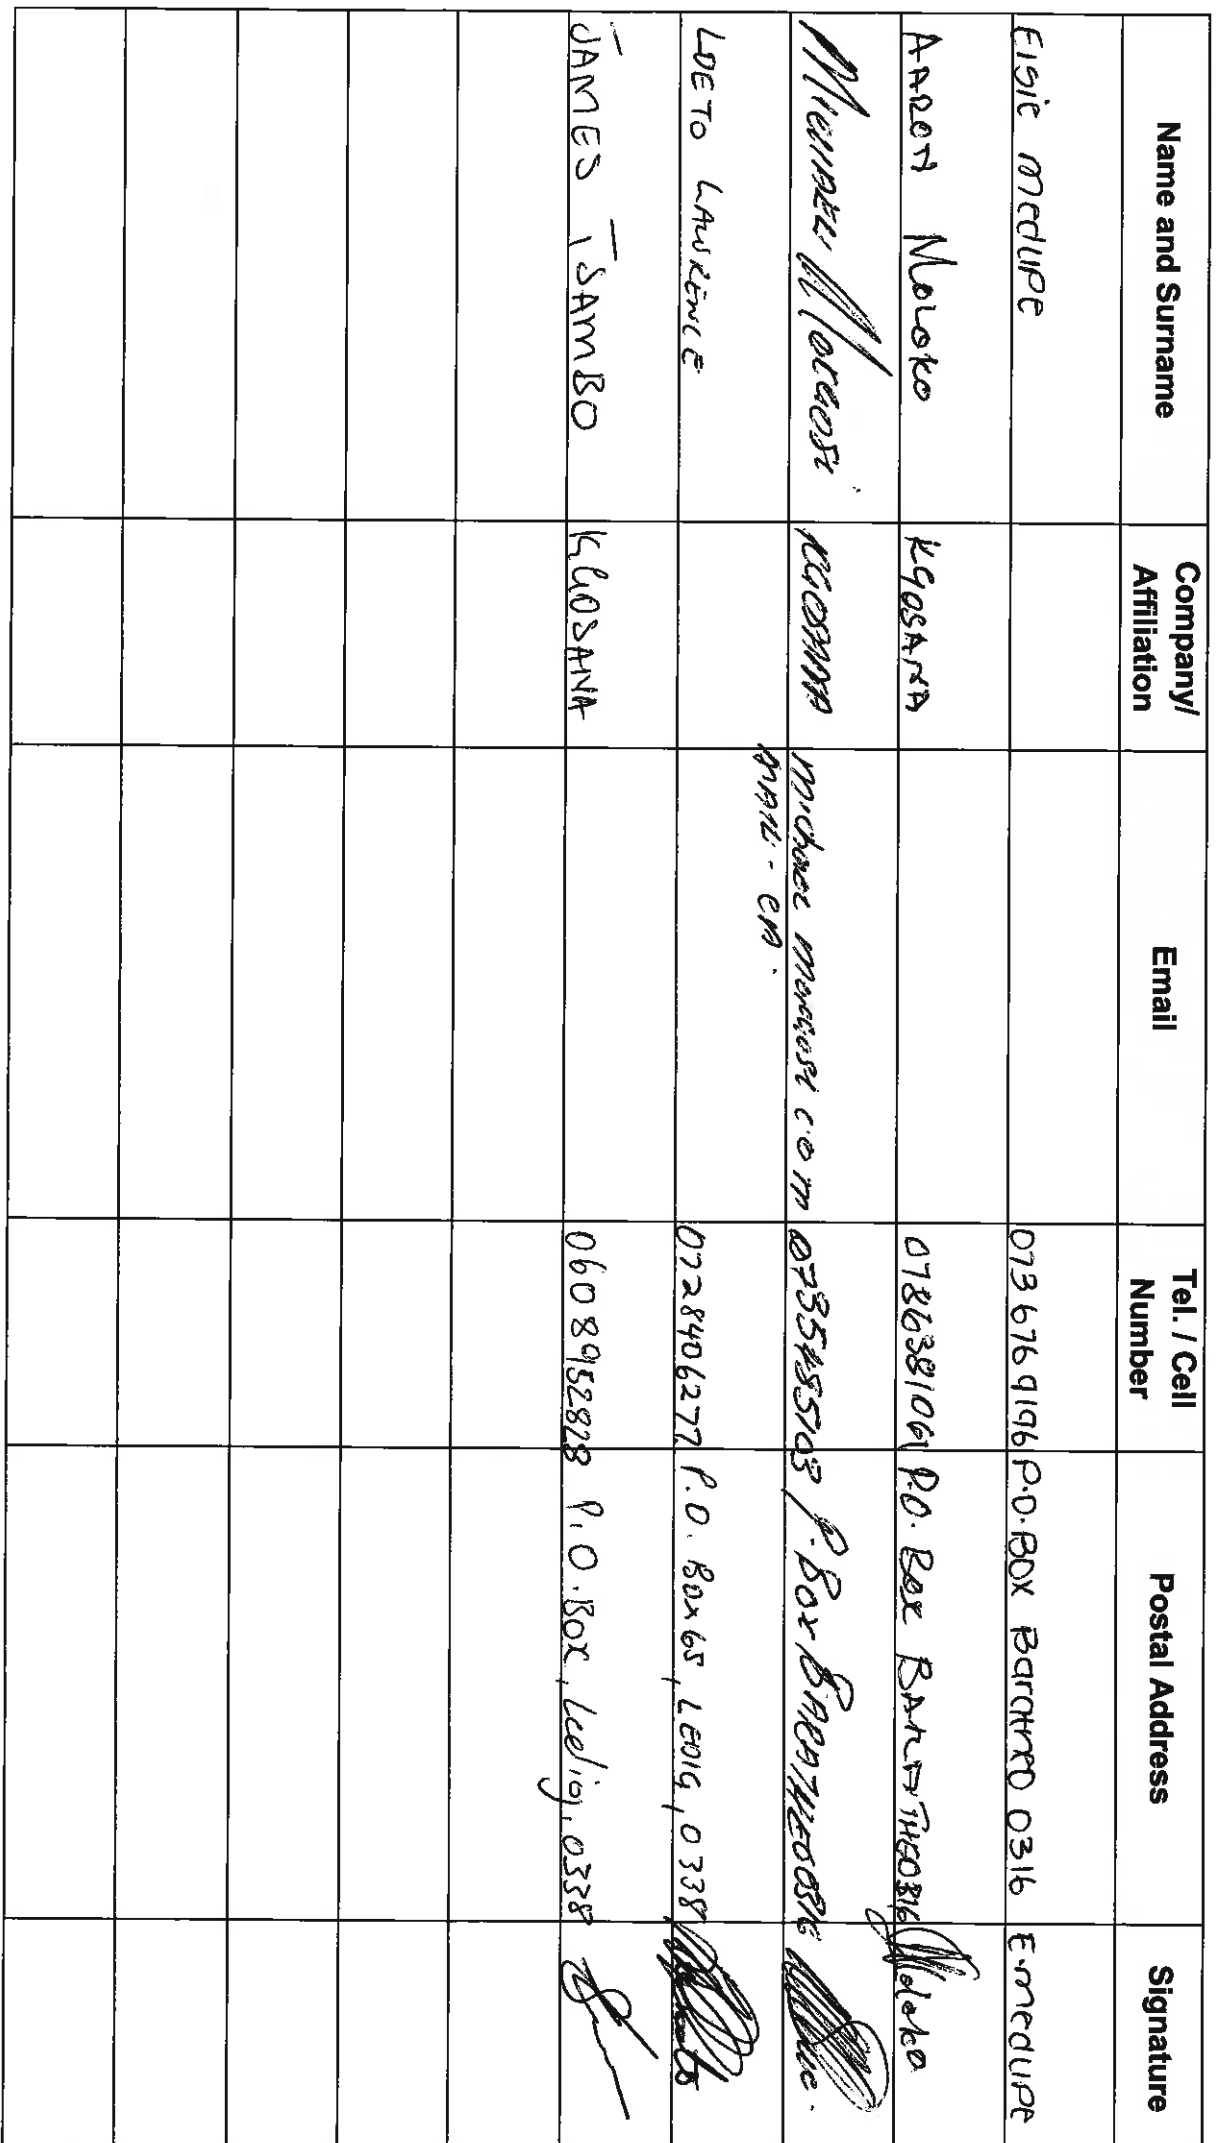 Name and Surname Company/ Affiliation Email Tel. / Cell Number Postal Address Signature
Elsie medupe 0736769196 P.O.BOX Baratheo 0316 E.medupe
AARON MOLOKO KGOSANA 0786381061 P.O. Box 0316 Moloko
Michael KGOSANA michael com 0735485703 P. Box BARATHEO 0316
LOETO LAWRENCE 0728406277 P.O. Box 65, LEDIG, 0338
JAMES TSAMBO KGOSANA 0608952828 P.O.Box, Ledig, 0338